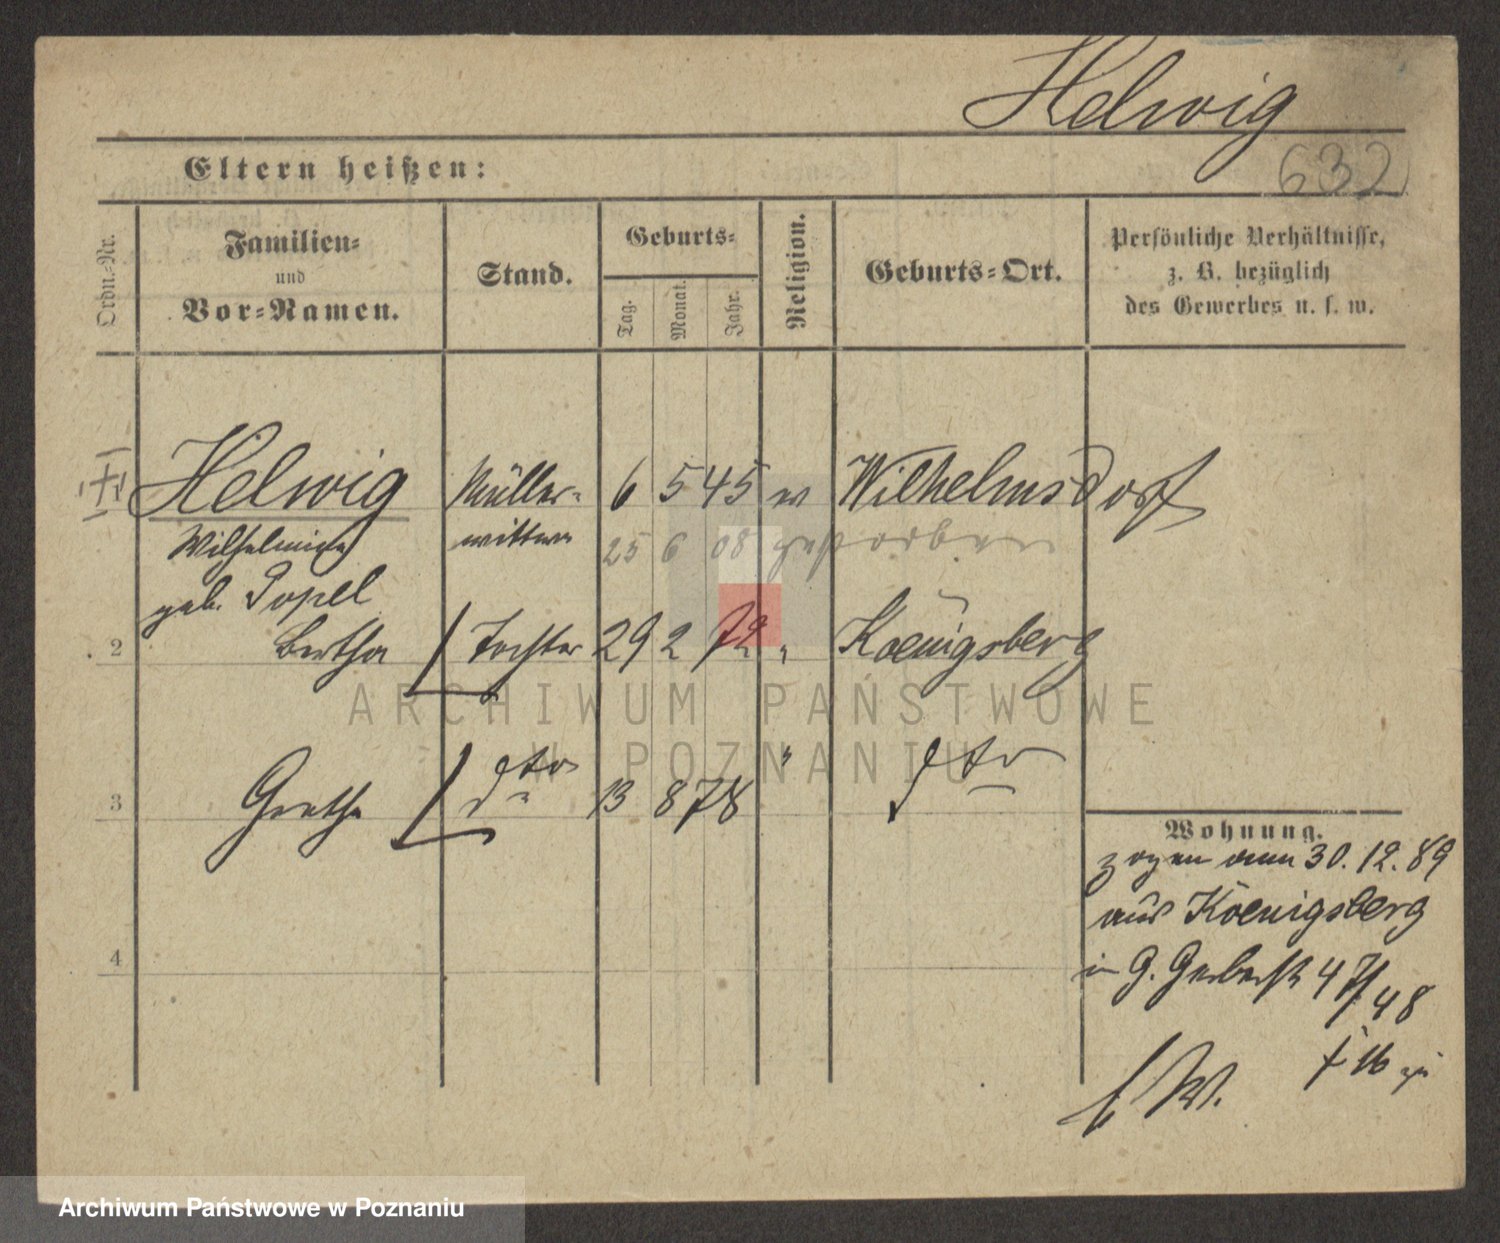 Helwig
632
Eltern heißen:
Ordn.-Nr.
Familien-
und
Vor-Namen.
Stand.
Geburts-
Tag.
Monat.
Jahr.
Religion.
Geburts-Ort.
Persönliche Verhältnisse,
z. B. bezüglich
des Gewerbes u. s. w.
Helwig Müller- 6 5 45 ev Wilhelmsdorf
Wilhelmine wittwe 25 6 08 gestorben
geb. Popell
2 Bertha Tochter 29 2 72 " Koenigsberg
ARCHIWUM PAŃSTWOWE
W POZNANIU
3 Grethe dto 13 8 78 " dto
4
Wohnung.
zogen am 30.12.89
aus Koenigsberg
in G. Gerberstr 47/48
W.
Archiwum Państwowe w Poznaniu